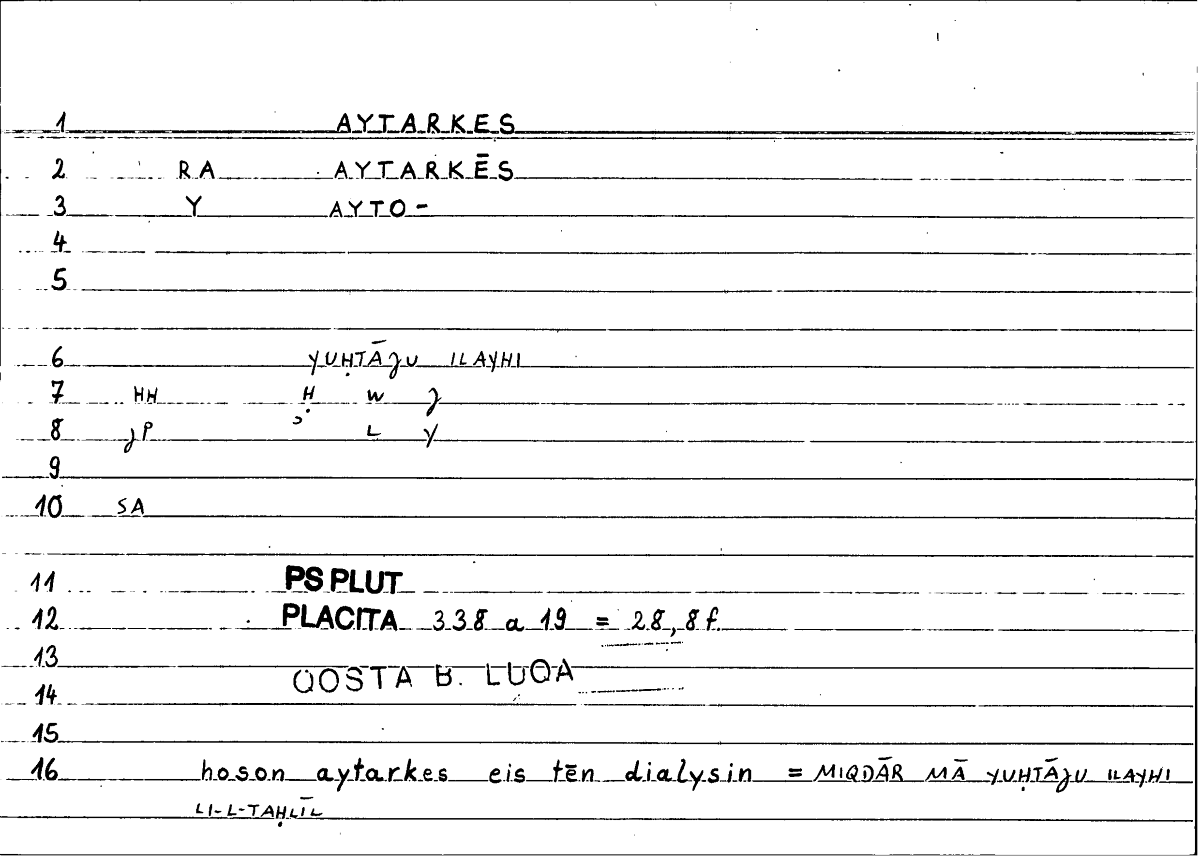 1 AYTARKES
2 RA AYTARKĒS
3 Y AYTO-
4
5
6 YUḤTĀJU ILAYHI
7 HH Ḥ W J
8 JP ʾ L Y
9
10 SA
11 PS PLUT
12 PLACITA 338 a 19 = 28,8f.
13
QOSTA B. LUQA
14
15
16 hoson aytarkes eis tēn dialysin = MIQDĀR MĀ YUḤTĀJU ILAYHI
LI-L-TAḤLĪL